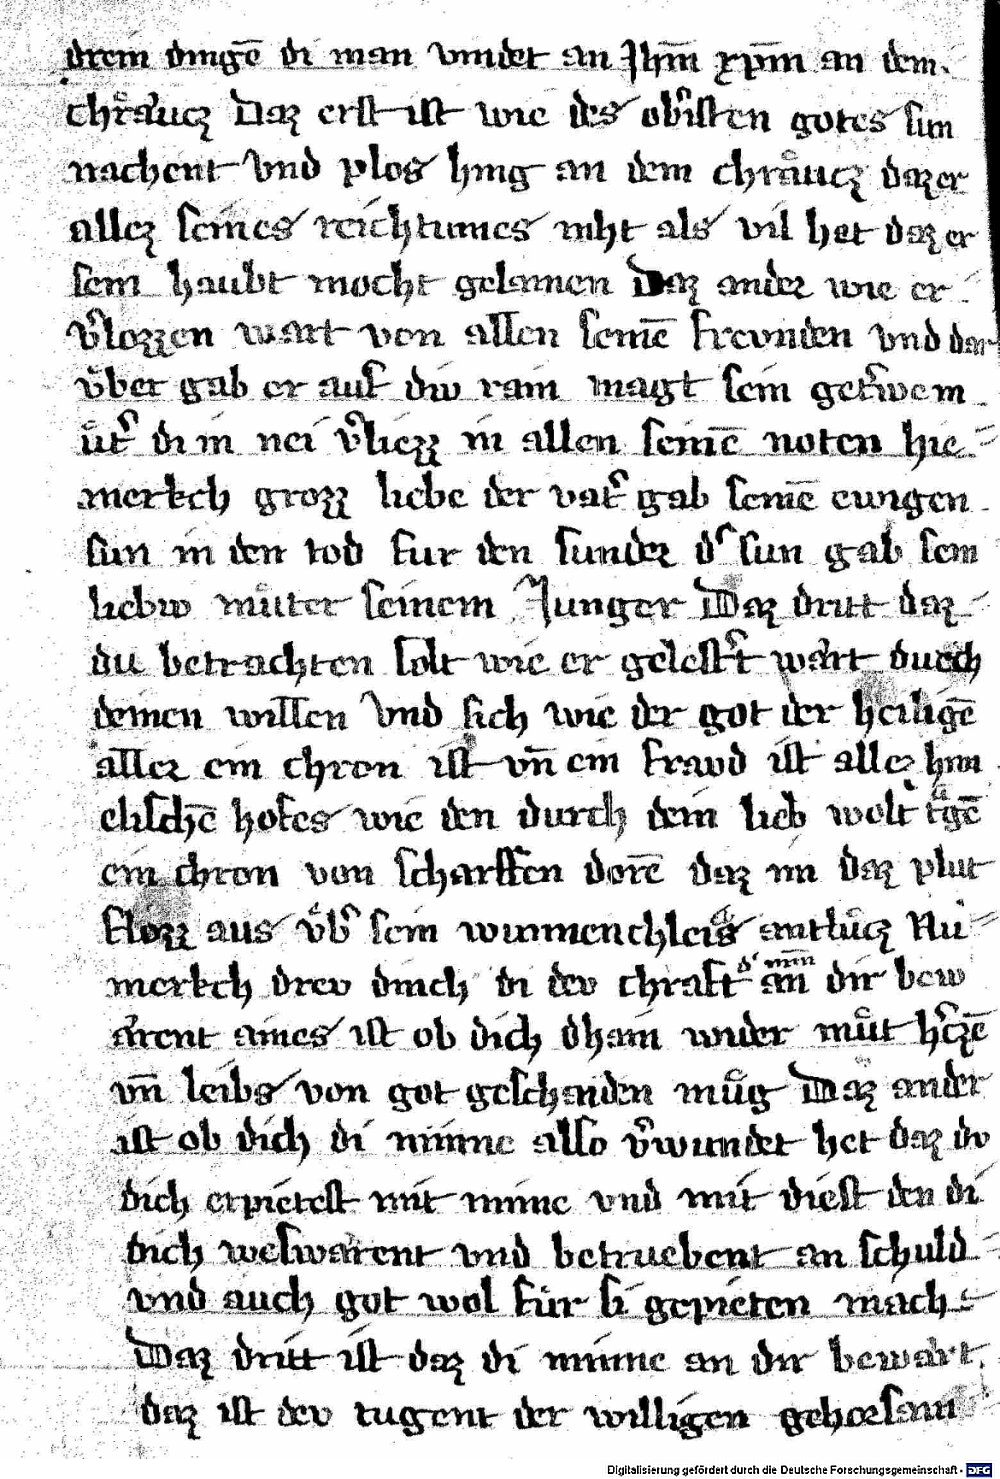 drein dingē di man vindet an Jhm̄ xp̄m an dem
chraͤucz Daz erst ist wie des obˢisten gotes sun
nachent Vnd plos hing an dem chraͤucz daz er
allez seines reichtumes niht als vil het daz er
sein haubt mocht gelainen Daz ander wie er
vˢlozzen wart von allen seinē freunden vnd dar
vͤber gab er auf div rain magt sein getˢwem
muͤtˢ di in nei vˢliezz in allen seinē noten hie
merkch grozz liebe der vatˢ gab seinē ewigen
sun in den tod fur den sunder dˢ sun gab sein
liebiv muͤter seinem Junger Daz dritt daz
du betrachten solt wie er gelestˢt wart durch
deinen willen Vnd sich wie der got der heiligē
aller ein chron ist vn̄ ein fravd ist allez him
elischē hofes wie den durch dein lieb wolt tͣgē
ein chron von scharffen dorē daz im daz plut
flozz aus vͤbˢ sein wunnenchleis antluͤcz Nu
merkch drev dinch di dev chraft dˢ minn an dir bew
arent aines ist ob dich dhain wider muͤt hˢczē
vn̄ leibs von got geschaiden muͤg Daz ander
ist ob dich di minne also vˢwundet het daz dv
dich erpietest mit minne vnd mit dienst den di
dich beswarent vnd betruebent an schuld
vnd auch got wol fuͤr si gepieten mach
Daz dritt ist daz di minne an dir bewart
daz ist dev tugent der willigen gehorsam
Digitalisierung gefördert durch die Deutsche Forschungsgemeinschaft - DFG